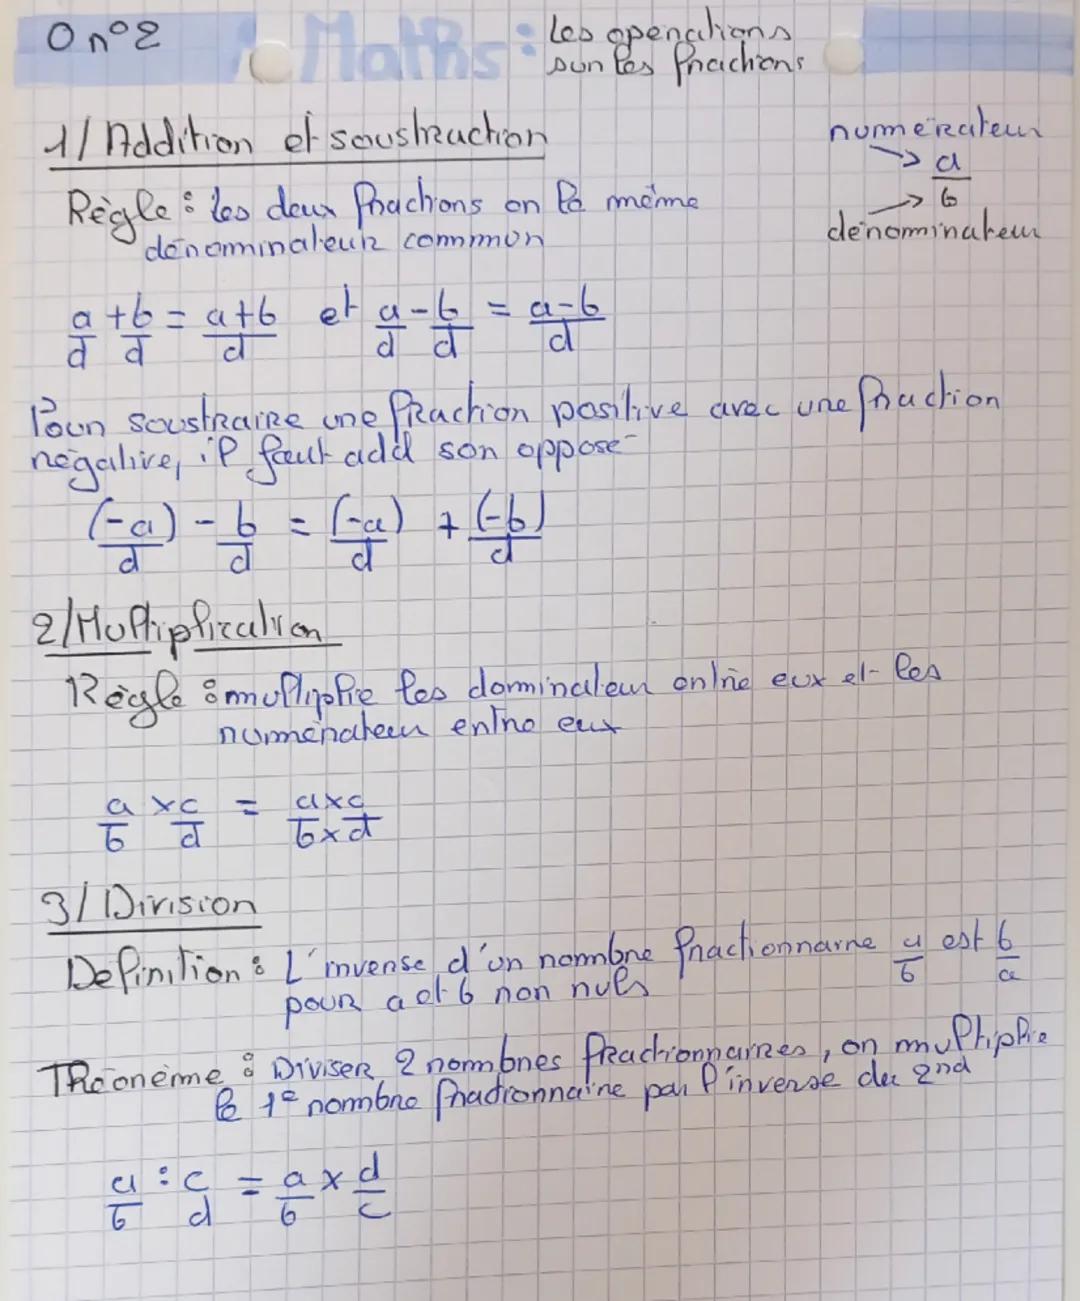 O n°2 Maths : Les operations
sur les fractions
1/ Addition et soustraction
numérateur
→ a
→ b
dénominateur
Règle : les deux fractions on la même
dénominateur commun
a/d + b/d = a+b/d et a/d - b/d = a-b/d
Pour soustraire une fraction positive avec une fraction
négative, il faut add son opposé
(-a)/d - b/d = (-a)/d + (-b)/d
2/ Multiplication
Règle : multiplie les dominateur entre eux et les
numérateur entre eux
a/b × c/d = a×c/b×d
3/ Division
Definition : L'inverse d'un nombre fractionnaire a/b est b/a
pour a et b non nuls
Théorème : Diviser 2 nombres fractionnaires, on multiplie
le 1e nombre fractionnaire par l'inverse du 2nd
a/b : c/d = a/b × d/c